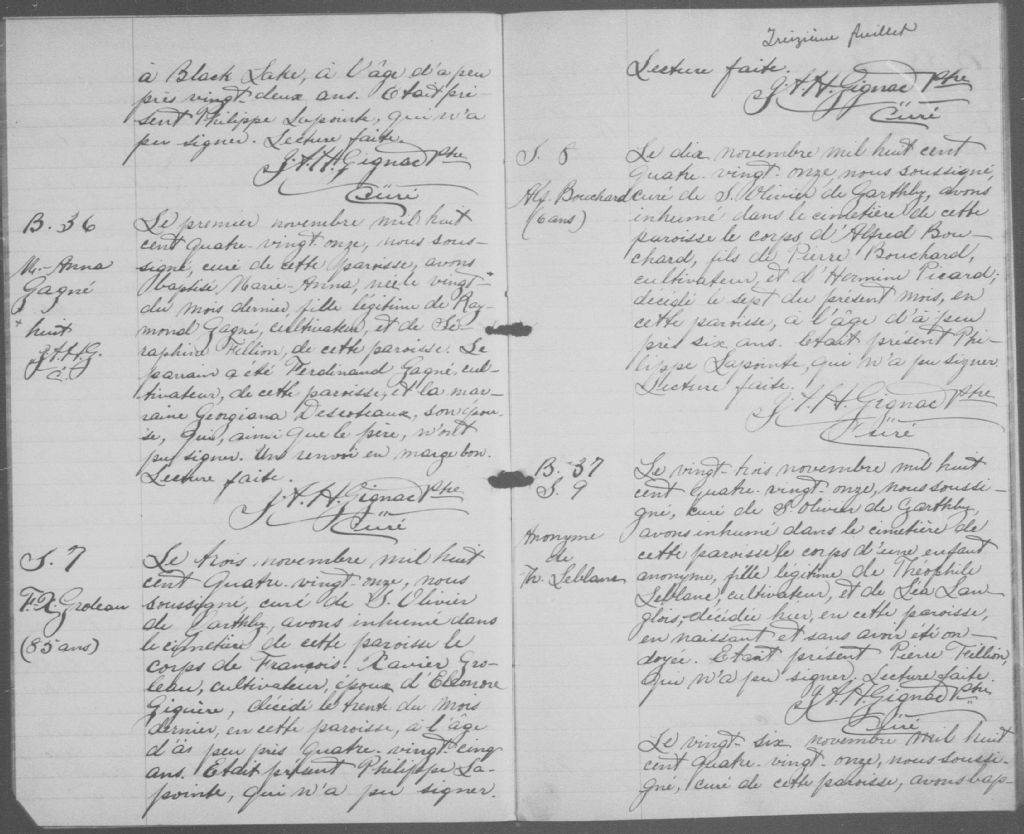 à Black Lake, à l'âge d'à peu
près vingt-deux ans. Etait pré-
sent Philippe Lapointe, qui n'a
pu signer. Lecture faite.
J. A. H. Gignac Ptre
Curé
B. 36
M.-Anna
Gagné
+ huit
J.A.H.G.
C.
Le premier novembre mil huit
cent quatre-vingt-onze, nous sous-
signé, curé de cette paroisse, avons
baptisé Marie-Anna, née le vingt-+
du mois dernier, fille légitime de Ray-
mond Gagné, cultivateur, et de Sé-
raphine Fellion, de cette paroisse. Le
parrain a été Ferdinand Gagné, cul-
tivateur, de cette paroisse, et la mar-
raine Georgiana Descoteaux, son épou-
se, qui, ainsi que le père, n'ont
pu signer. Un renvoi en marge bon.
Lecture faite.
J. A. H. Gignac Ptre
Curé
S. 7
F. X. Groleau
(85 ans)
Le trois novembre mil huit
cent quatre-vingt-onze, nous
soussigné, curé de S. Olivier
de Garthby, avons inhumé dans
le cimetière de cette paroisse le
corps de François-Xavier Gro-
leau, cultivateur, époux d'Eléonore
Giguère, décédé le trente du mois
dernier, en cette paroisse, à l'âge
d'à peu près quatre-vingt-cinq
ans. Etait présent Philippe La-
pointe, qui n'a pu signer.
Treizième feuillet
Lecture faite.
J. A. H. Gignac Ptre
Curé
S. 8
Alf. Bouchard
(6 ans)
Le dix novembre mil huit cent
quatre-vingt-onze, nous soussigné,
curé de S. Olivier de Garthby, avons
inhumé dans le cimetière de cette
paroisse le corps d'Alfred Bou-
chard, fils de Pierre Bouchard,
cultivateur, et d'Hermine Picard;
décédé le sept du présent mois, en
cette paroisse, à l'âge d'à peu
près six ans. Etait présent Phi-
lippe Lapointe, qui n'a pu signer.
Lecture faite.
J. A. H. Gignac Ptre
Curé
B. 37
S. 9
Anonyme
de
Th. Leblanc
Le vingt-trois novembre mil huit
cent quatre-vingt-onze, nous soussi-
gné, curé de S. Olivier de Garthby,
avons inhumé dans le cimetière de
cette paroisse le corps d'une enfant
anonyme, fille légitime de Théophile
Leblanc, cultivateur, et de Léa Lan-
glois, décédée hier, en cette paroisse,
en naissant et sans avoir été on-
doyée. Etait présent Pierre Fellion,
qui n'a pu signer. Lecture faite.
J. A. H. Gignac Ptre
Curé
Le vingt-six novembre mil huit
cent quatre-vingt-onze, nous soussi-
gné, curé de cette paroisse, avons bap-